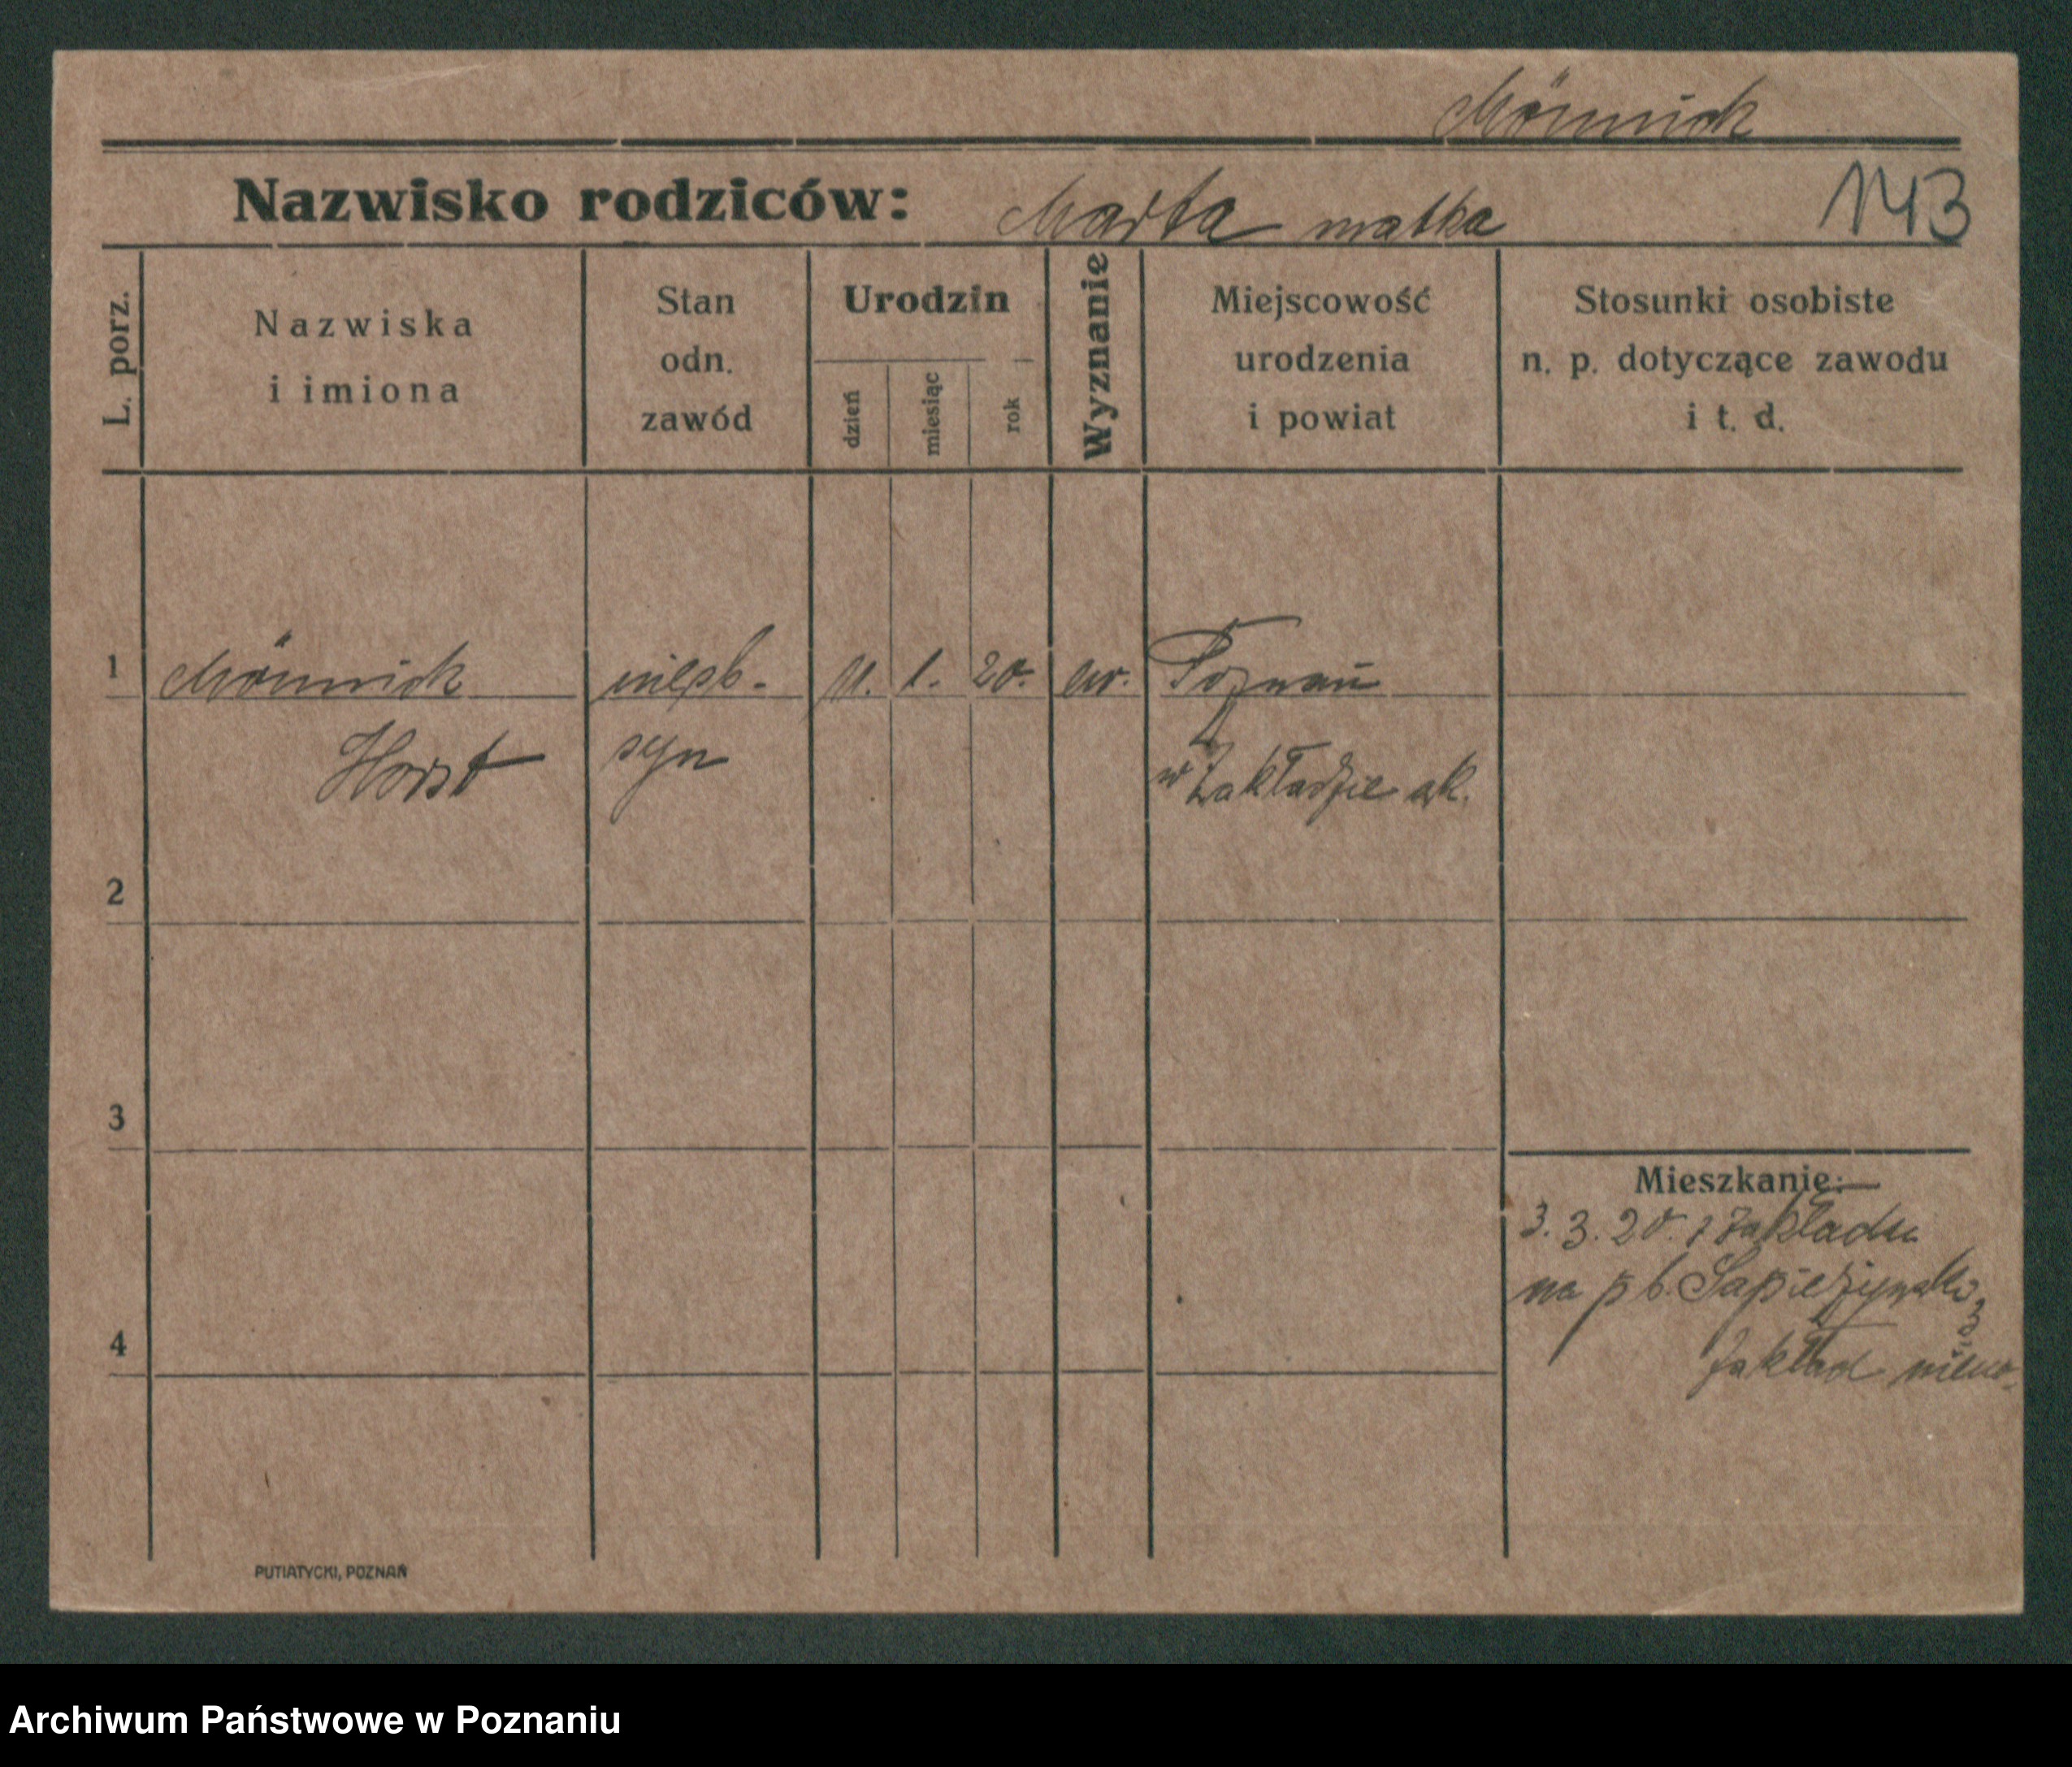 Mönnich
Nazwisko rodziców: Marta matka
143
L. porz.
Nazwiska
i imiona
Stan
odn.
zawód
Urodzin
dzień
miesiąc
rok
Wyznanie
Miejscowość
urodzenia
i powiat
Stosunki osobiste
n. p. dotyczące zawodu
i t. d.
1 Mönnich 11. 1. 20. ew. Poznań
Horst syn w Zakładzie ak.
2
3
4
Mieszkanie:
3. 3. 20. z Zakładu
na pl.
3
Zakład
PUTIATYCKI, POZNAŃ
Archiwum Państwowe w Poznaniu